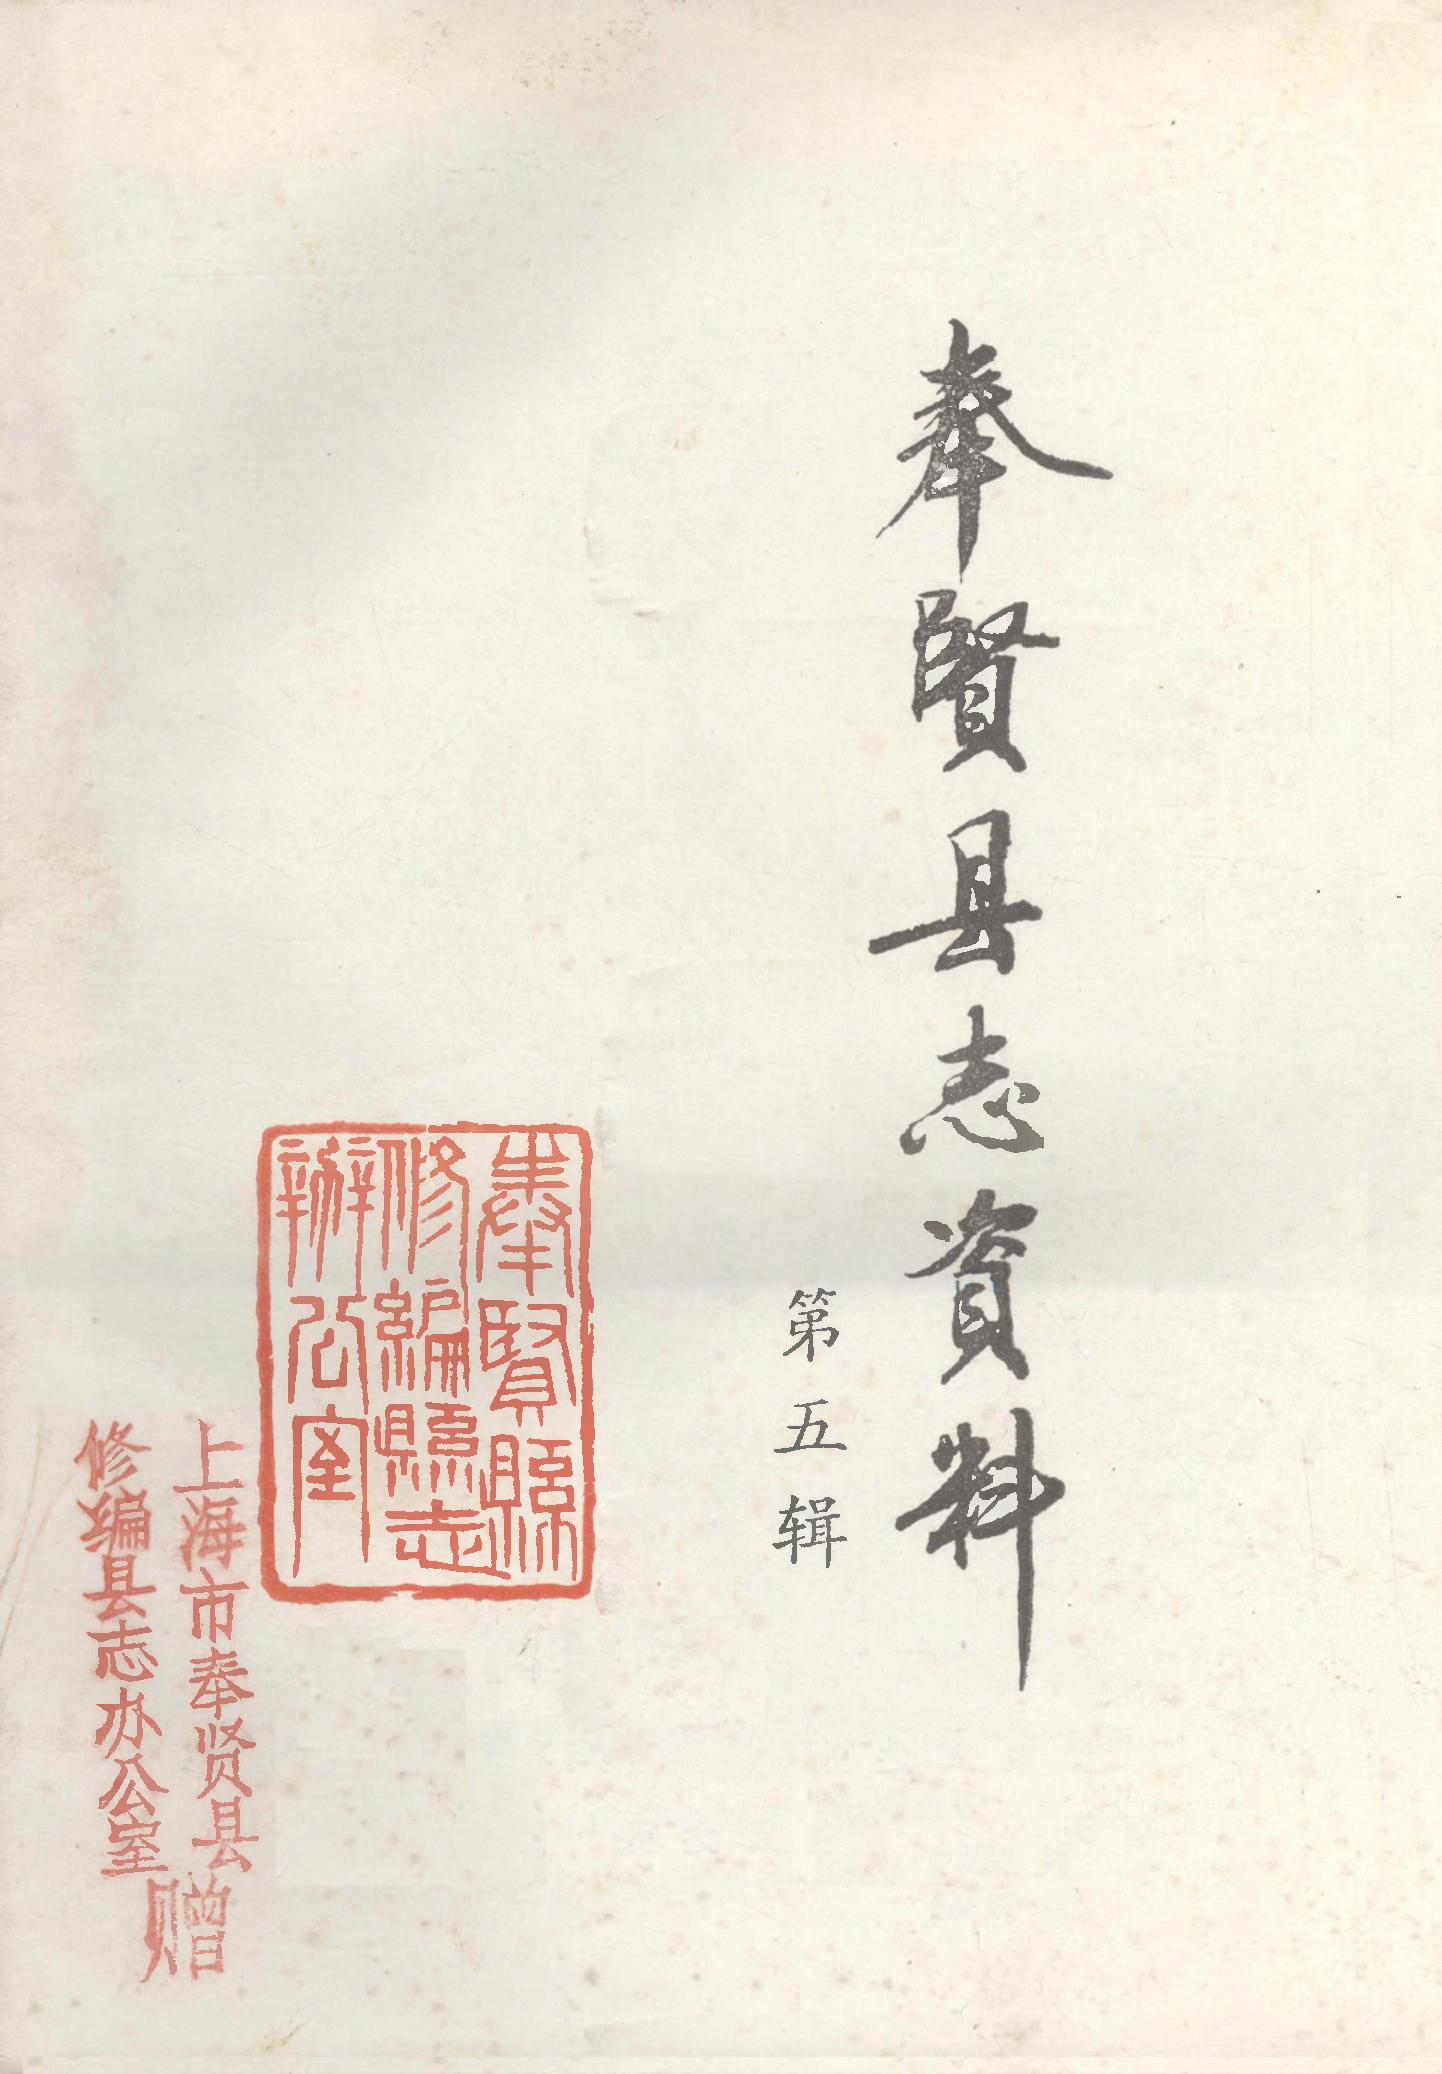 奉賢县志資料
第五辑
奉賢縣
修編縣志
辦公室
上海市奉贤县
修编县志办公室
赠